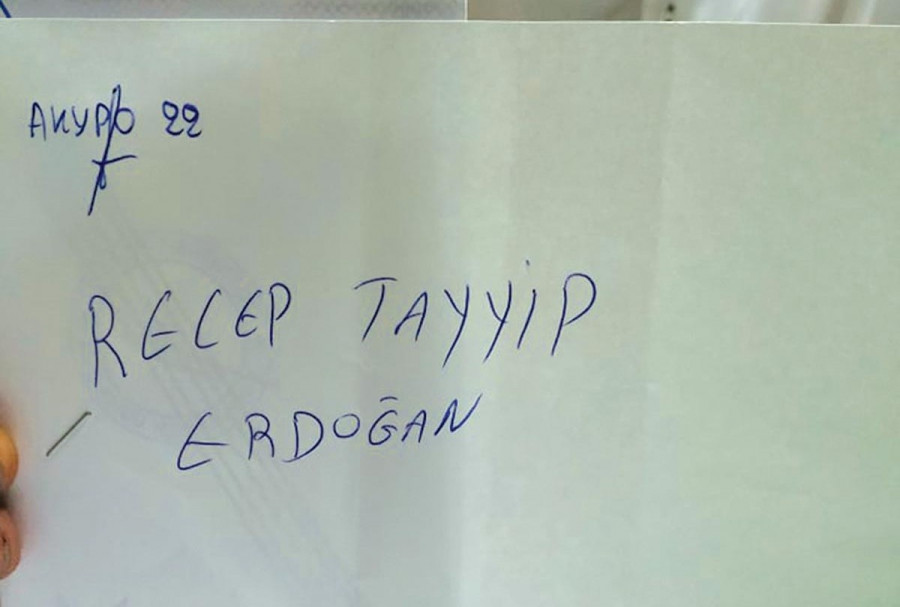 22
RECEP TAYYİP
ERDOĞAN